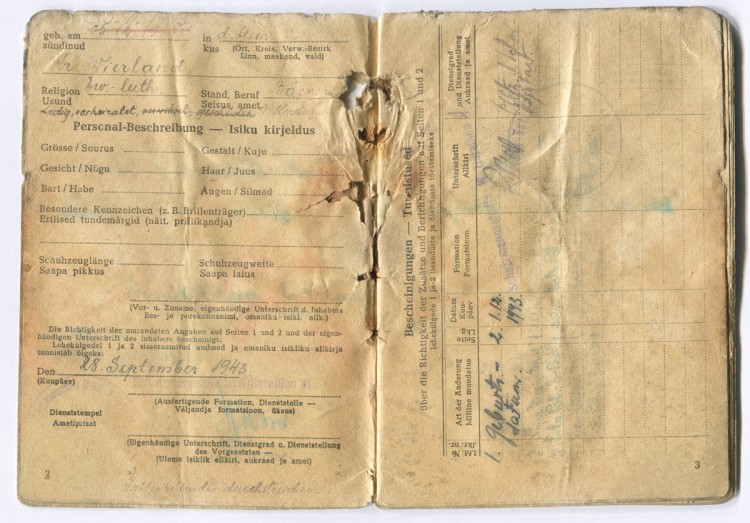 geb. am
in
sündinud
kus (Ort, Kreis, Verw.-Bezirk
Linn, maakond, vald)
Wierland
Religion Ev. luth. Stand, Beruf
Usund Seisus, amet
Ledig, verheiratet, verwitwet, geschieden
Personal-Beschreibung — Isiku kirjeldus
Grösse / Suurus Gestalt / Kuju
Gesicht / Nägu Haar / Juus
Bart / Habe Augen / Silmad
Besondere Kennzeichen (z. B. Brillenträger)
Erilised tundemärgid (näit. prillikandja)
Schuhzeuglänge Schuhzeugweite
Saapa pikkus Saapa laius
(Vor- u. Zuname, eigenhändige Unterschrift d. Inhabers
Ees- ja perekonnanimi, omaniku isikl. allk.)
Die Richtigkeit der umrandeten Angaben auf Seiten 1 und 2 und der eigen-
händigen Unterschrift des Inhabers bescheinigt:
Lehekülgedel 1 ja 2 sisseraamitud andmed ja omaniku isikliku allkirja
tunnistab õigeks:
Den 28. September 1943
(Kuupäev)
(Ausfertigende Formation, Dienststelle —
Väljandja formatsioon, üksus)
Dienststempel
Ametipitsat
(Eigenhändige Unterschrift, Dienstgrad u. Dienststellung
des Vorgesetzten —
(Ülema isiklik allkiri, aukraad ja amet)
2
Bescheinigungen — Tunnistused
über die Richtigkeit der Zusätze und Berichtigungen auf Seiten 1 und 2
lehekülgede 1 ja 2 lisanduste ja õienduste tõestamiseks
Lfd. №
Jkr. nr.
Art der Änderung
Milline muudatus
Seite
Lk.
Datum
Kuu-
päev
Formation
Formatsioon
Unterschrift
Allkiri
Dienstgrad
und Dienststellung
Aukraad ja amet
1. Geburts-
datum.
2.
1.12.
1943.
3